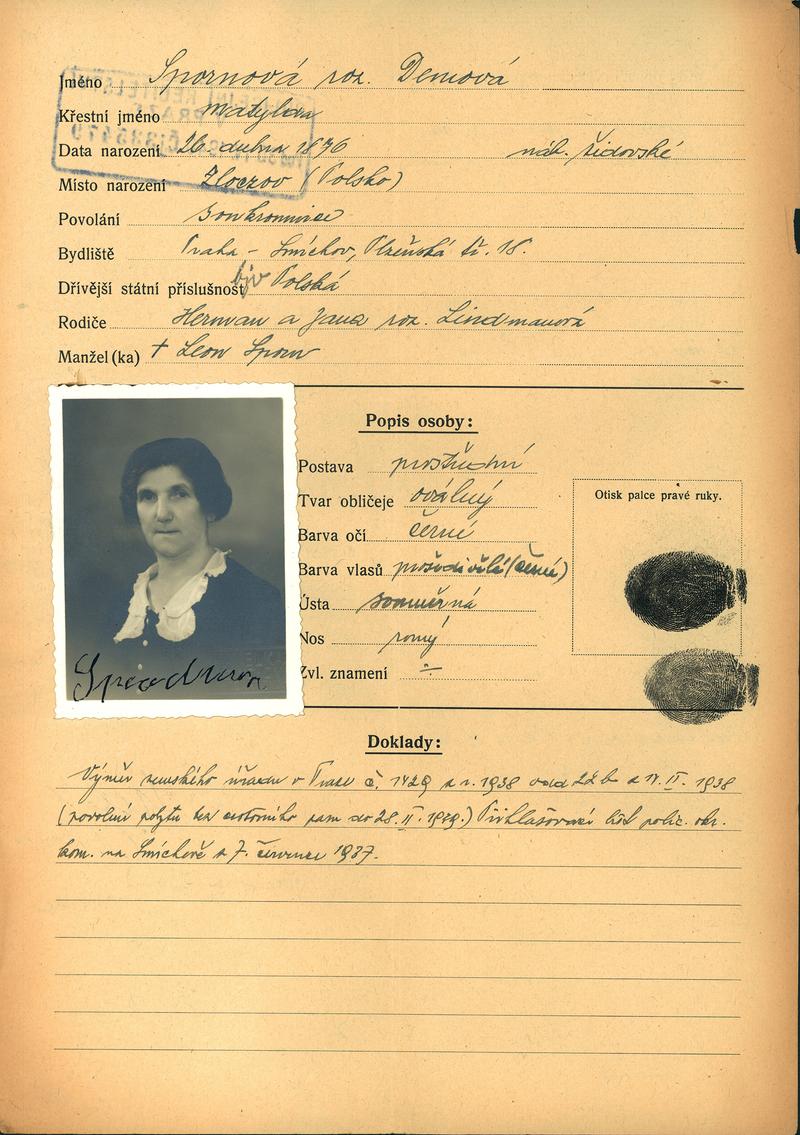 Jméno Spornová roz. Demová
Křestní jméno Matylda
Data narození 26. dubna 1876 náb. židovské
Místo narození Zloczov (Polsko)
Povolání soukromnice
Bydliště Praha - Smíchov, Plzeňská tř. 18.
Dřívější státní příslušnost býv Polská
Rodiče Herman a Jana roz. Lindmanová
Manžel (ka) † Leon Sporn
Popis osoby:
Postava prostřední
Tvar obličeje oválný
Otisk palce pravé ruky.
Barva očí černé
Barva vlasů prošedivělé (černé)
Ústa souměrná
Nos rovný
Zvl. znamení ÷
Doklady:
Výměr zemského úřadu v Praze č. 1429 z r. 1938 odd 22 b z 17. II. 1938
(povolení pobytu bez cestovního pasu do 28. II. 1929.) Přihlašovací list polic. okr.
kom. na Smíchově z 7. července 1937.